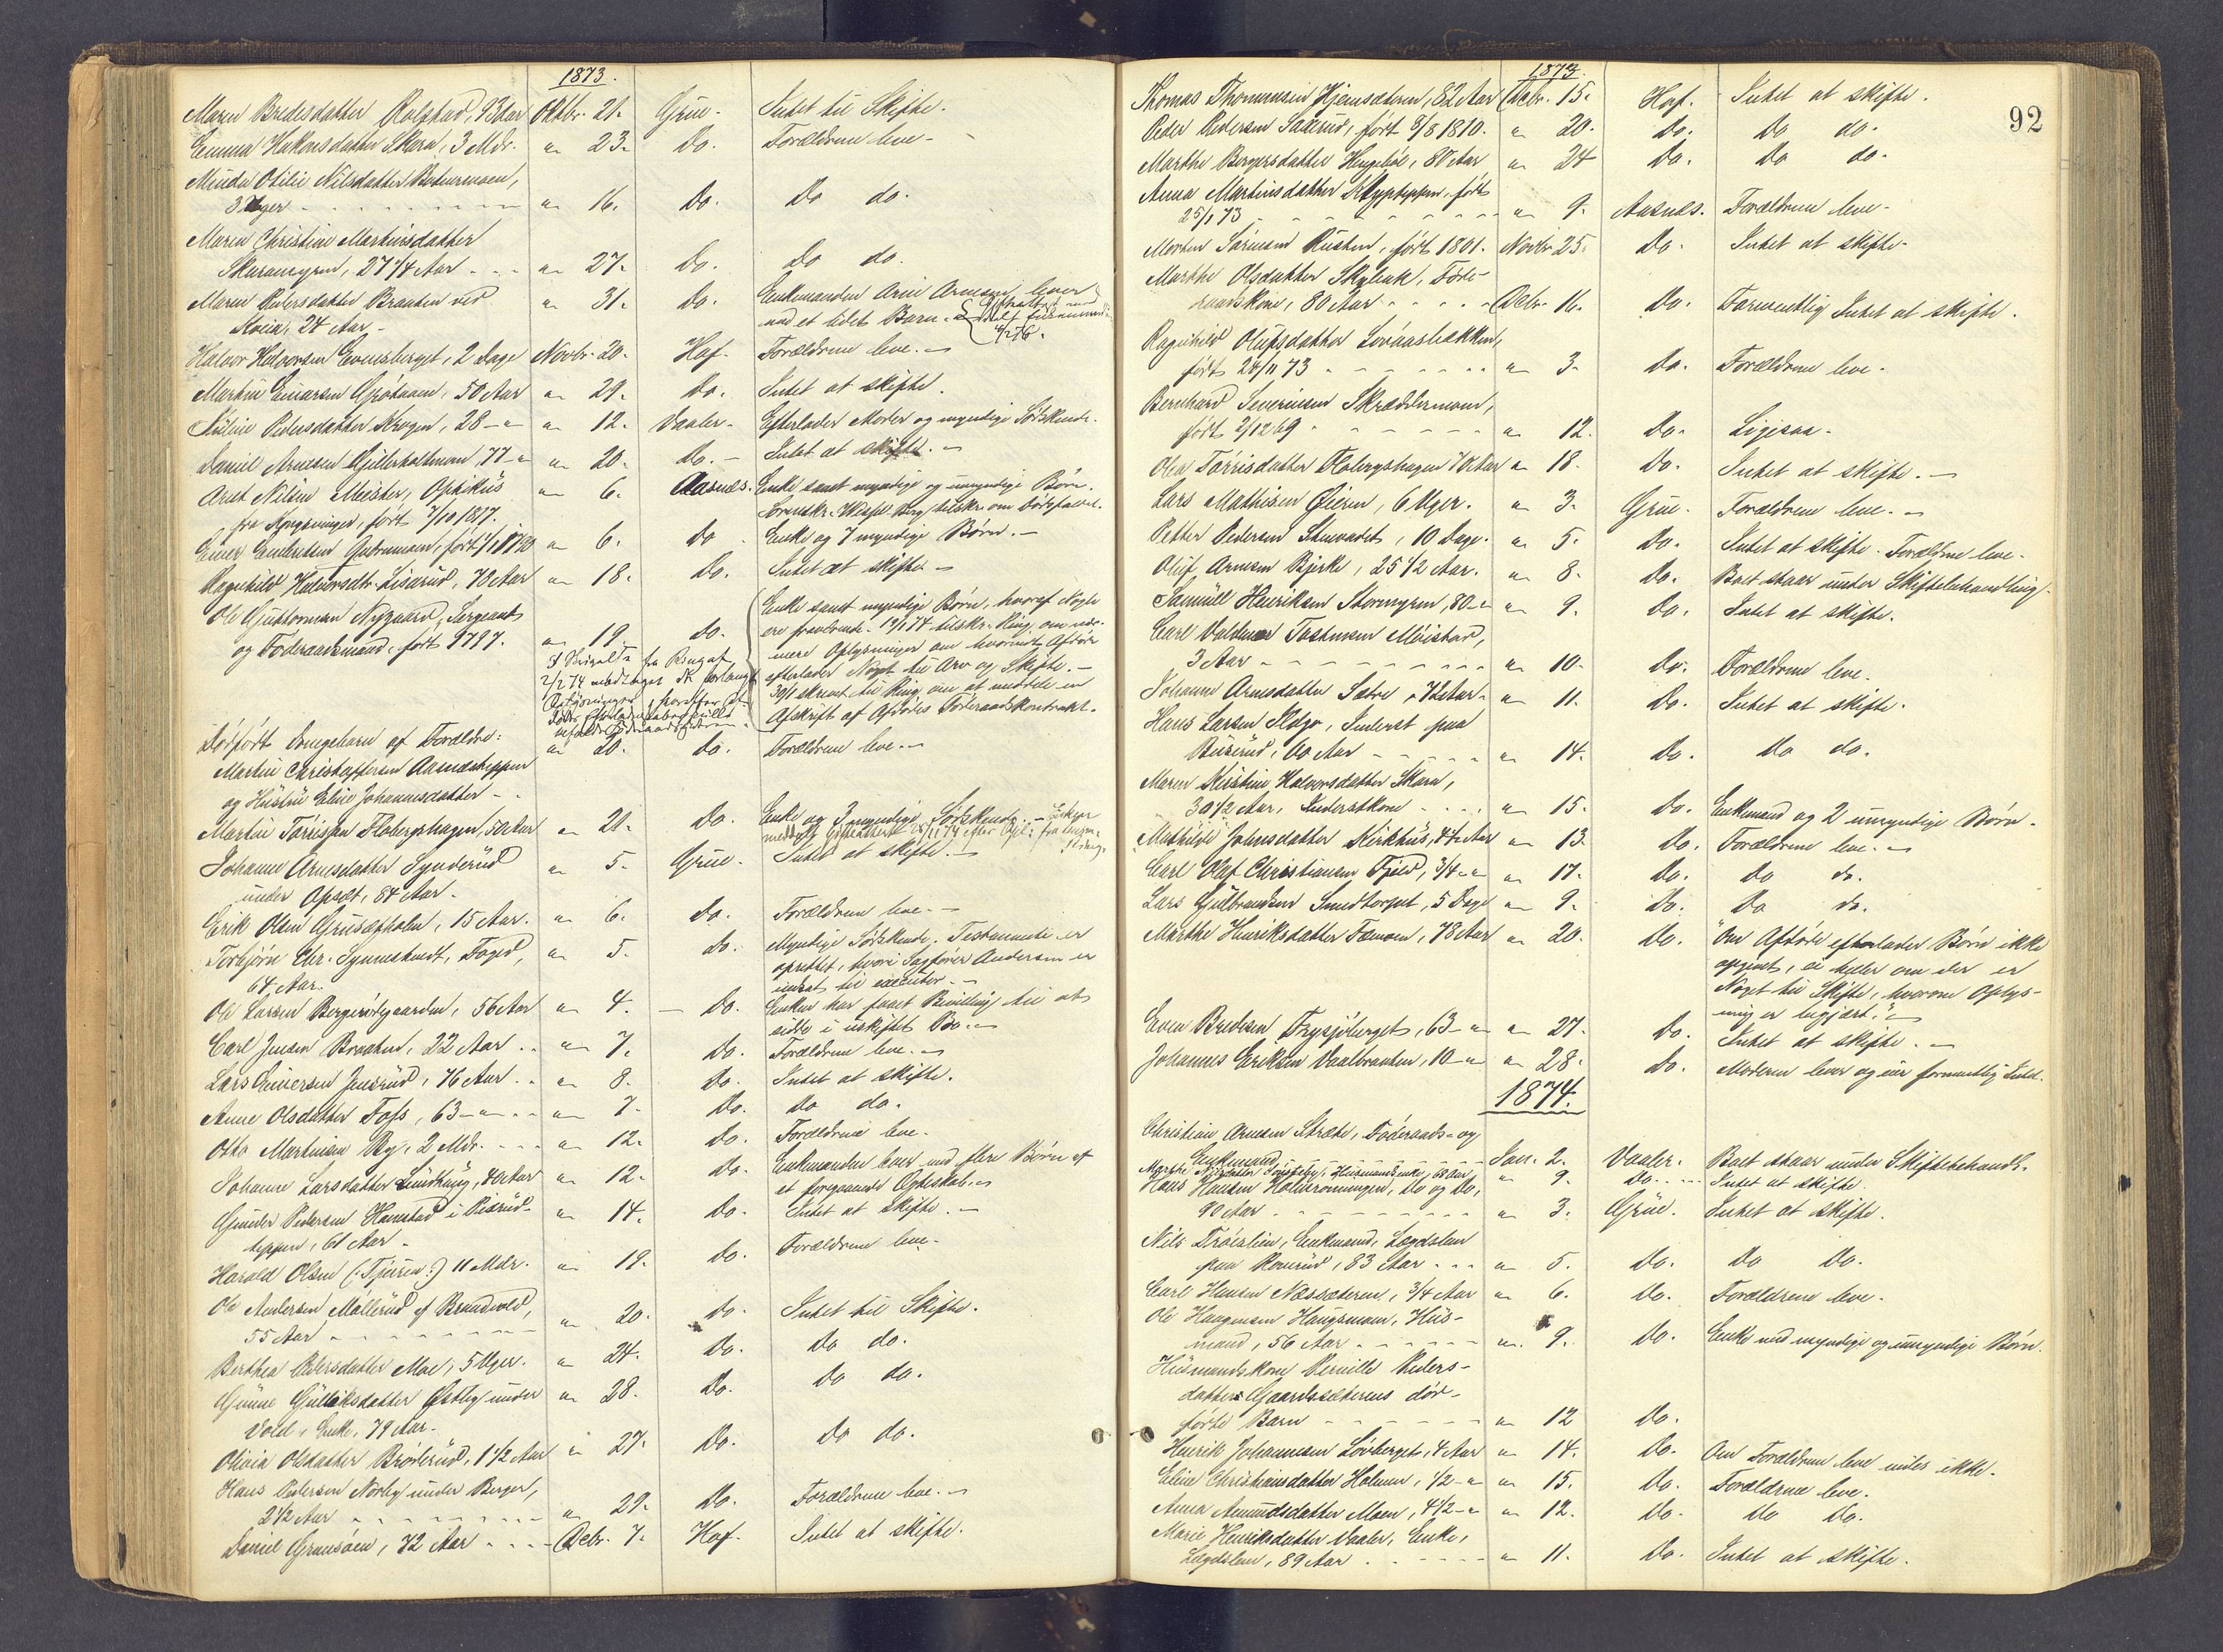 1873.
Maren Bredesdatter Kolstad, 93 Aar Oktbr. 21. Grue. Intet til Skifte.
Emma Hakonsdatter Skara, 3 Mdr. " 23. Do. Forældrene leve.
Minda Otilie Nilsdatter
3 Uger " 16. Do. Do do.
Maren Christine Martinsdatter
Skaramyren, 27 1/4 Aar " 27. Do. Do do.
Maren Pedersdatter Braaten ved " 31. Do. Enkemanden Arne Arnesen lever
24 Aar. med et lidet Barn.
4/2 76.
Halvor Halvorsen Evensberget, 2 Dage Novbr. 20. Hof. Forældrene leve.
Martin Einarsen 50 Aar " 29. Do. Intet at skifte.
Pedersdatter Krogen, 28 " " 12. Vaaler. Efterlader Moder og myndige Sødskende.
Daniel Arnesen Gillerholtmoen, 77 " " 20. Do. Intet at skifte.
Nilsen Meister, Optikus " 6. Aasnes. Enke samt myndige og umyndige Børn.
fra Kongsvinger, født 7/10 1817. Berg tilskr. om Dødsfaldet.
Einer Embretsen født 1/1 1790 " 6. Do Enke og 7 myndige Børn.
Ragnhild Halvorsdtr. Lisarud, 70 Aar " 18. Do. Intet at skifte
Ole Guttormsen Nygaard, Sergeant Enke samt myndige Børn, hvoraf Nogle
og Føderaadsmand, født 1797. " 19. Do. ere fraværende. 19/1 74 tilskr. Ring om nær-
mere Oplysninger om hvorvidt Afdøde
efterlader Noget til Arv og Skifte.
30/1 skrevet til Ring om at meddele en
Afskrift af Afdødes Føderaadskontrakt.
I Skrivelse fra Ring af
2/2 74 modtaget de forlangte
Oplysninger, hvorefter
Dødfødt Drengebarn af Forældre: " 20. do. Forældrene leve.
Martin Christoffersen Aasnæseppen
og Hustru Eline Johannesdatter
Martin Tørrissen Flobergshagen, 50 Aar " 21. Do. Enke og 3 myndige Sødskende.
Johanne Arnesdatter Synderud " 5. Grue. Intet at skifte.
under Opset, 84 Aar.
Erik Olsen Gruesætholen, 15 Aar. " 6. Do. Forældrene leve.
Torbjørn Chr. Synnestvedt, Foged, " 5. do. Myndige Sødskende. Testamente er
64 Aar. oprettet, hvori Sagfører Andersen er
indsat til executor.
Ole Larsen Bergerødegaarden, 56 Aar " 4. Do. Enken har faaet Bevilling til at
sidde i uskiftet Bo.
Carl Jensen Braaten, 22 Aar " 7. Do. Forældrene leve.
Lars Einersen Jensrud, 76 Aar " 8. Do. Intet at skifte.
Anne Olsdatter Foss, 63 " " 7. Do. Do do.
Otto Martinsen Ny, 2 Mdr. " 12. Do. Forældrene leve.
Johanne Larsdatter Lundhaug, 40 Aar " 12. Do. Enkemanden lever med flere Børn af
et foregaaende Ægteskab.
Gunder Pedersen Hamstad i Risrud- " 14. Do. Intet at skifte.
teppen, 61 Aar
Harald Olsen (:Tjuren:) 11 Mdr. " 19. Do. Forældrene leve.
Ole Andersen Møllerud af Brandvold,
55 Aar " 20. Do. Intet til Skifte.
Berthea Pedersdatter Moe, 5 Uger. " 24. Do. Do do.
Gunne Gulliksdatter Østby under " 28. Do. Do do.
Vold, Enke, 79 Aar.
Olivia Olsdatter Brøderud, 1 1/2 Aar " 27. Do. Do do.
Hans Pedersen Nørby under Berger,
2 1/2 Aar " 29. Do. Forældrene leve.
Daniel Grunsøen, 72 Aar Decbr. 7. Hof. Intet at skifte.
92
1873.
Thomas Thommesen Hjemsæteren, 82 Aar Decbr. 15. Hof. Intet at skifte.
Peder Pedersen Saxerud, født 8/8 1810. " 20. Do. Do do.
Marthe Bergersdatter 80 Aar " 24 Do. Do do.
Anna Martinsdatter født
25/1 73 " 9. Aasnes. Forældrene leve.
Morten Sørensen Kusten, født 1801. Novbr. 25. Do. Intet at skifte.
Marthe Olsdatter Føde-
raadskone, 80 Aar Decbr. 16. Do. Formentlig Intet at skifte.
Ragnhild Olufsdatter Løvaasbakken,
født 26/11 73 " 3. Do. Forældrene leve.
Bernhard Severinsen Skræddermoen,
født 2/12 69 " 12. Do. Ligesaa.
Olea Tørrisdatter Flobergshagen 70 Aar " 18. Do. Intet at skifte.
Lars Mathisen Øieren, 6 Uger. " 3. Grue. Forældrene leve.
Petter Pedersen 10 Dage. " 5. Do. Intet at skifte. Forældrene leve.
Oluf Arnesen Bjerke, 25 1/2 Aar. " 8. Do. Boet staar under Skiftebehandling.
Samuel Henriksen Stormyren, 80 " " 9. Do. Intet at skifte.
Carl Valdemar Tostensen Meistad,
3 Aar " 10. Do. Forældrene leve.
Johanne Arnesdatter Sætre, 72 Aar " 11. Do. Intet at skifte.
Hans Larsen Inderst paa
Buserud, 60 Aar " 14. Do. Do do.
Maren Kristine Halvorsdatter Skara,
30 1/2 Aar, Inderstkone " 15. Do. Enkemand og 2 umyndige Børn.
Mathilde Johnsdatter Kirkhus, 4 1/4 Aar " 13. Do. Forældrene leve.
Carl Olaf Christiansen Fjeld, 3/4 " " 17. Do. Do do.
Lars Gulbrandsen Smedtorpet, 5 Dage " 9. Do. Do do.
Marthe Henriksdatter Tæmoen, 78 Aar " 20. Do. "Om Afdøde efterlader Børn ikke
opgivet, ei heller om der er
Noget til Skifte, hvorom Oplys-
ning er begjært."
Even Bredesen Frysjøberget, 63 " " 27. Do. Intet at skifte.
Johannes Eriksen Vaalbraaten, 10 " " 28. Do. Moderen lever og eier formentlig Intet.
1874.
Christian Arnesen Stræte, Føderaads- og
Enkemand Jan. 2. Vaaler. Boet staar under Skiftebehandl.
Marthe Husmandsenke, 68 Aar " 9. Do. Intet at skifte.
Hans Hansen Do og Do,
90 Aar " 3. Grue. Intet at skifte.
Nils Trøeslien, Enkemand, Lægdslem
paa 83 Aar " 5. Do. Do Do.
Carl Hansen Næssæteren, 3/4 Aar " 6. Do. Forældrene leve.
Ole Haagensen Haugsmoen, Hus-
mand, 56 Aar " 9. Do. Enke med myndige og umyndige Børn.
Husmandskone Pernille Peders-
datter Gaardssæterens død-
fødte Barn " 12 Do.
Henrik Johannesen Løvberget, 4 Aar " 14. Do. Om Forældrene leve vides ikke.
Eline Christiansdatter Holmen, 1/2 " " 15. Do. Forældrene leve.
Anna Amundsdatter Moen, 4 1/2 " " 12. Do. Do Do.
Marie Henriksdatter Vaaler, Enke,
Lægdslem, 89 Aar " 11. Do. Intet at skifte.